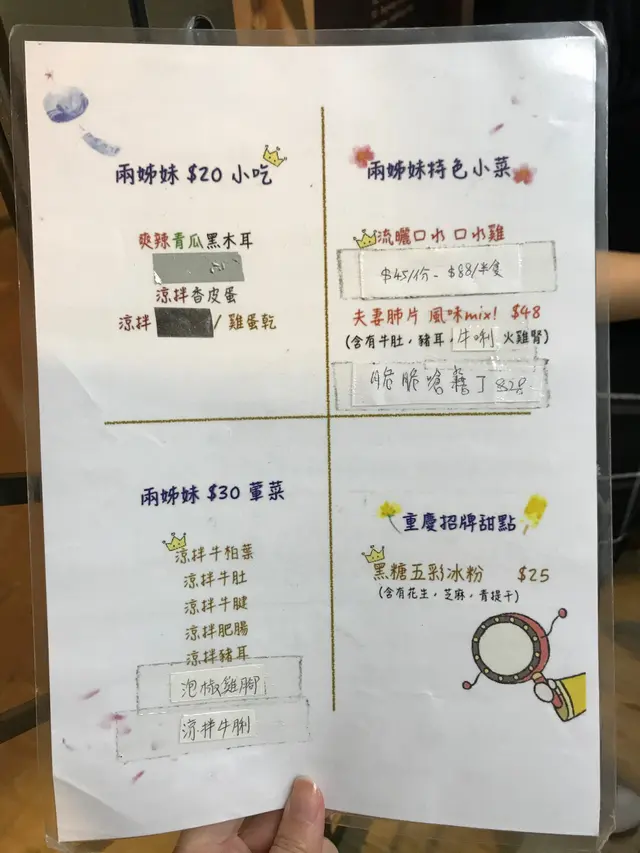 兩姊妹 $20 小吃
爽辣青瓜黑木耳
涼拌香皮蛋
涼拌 / 雞蛋乾
兩姊妹特色小菜
流曬口水 口水雞
$45/份 - $88/半隻
夫妻肺片 風味mix! $48
(含有牛肚，豬耳，牛脷 火雞腎)
脆脆嗆藕丁 $28
兩姊妹 $30 葷菜
涼拌牛柏葉
涼拌牛肚
涼拌牛腱
涼拌肥腸
涼拌豬耳
泡椒雞腳
涼拌牛脷
重慶招牌甜點
黑糖五彩冰粉 $25
(含有花生，芝麻，青提干)